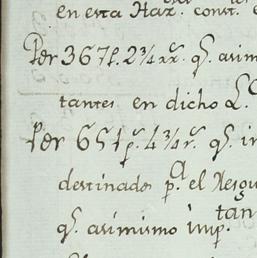 en esta Haz.ª const.
Per 367 p.s 2¾ rr.s q.e asim
tantes en dicho L.
Per 651 p.s 4¾ r.s q.e in
destinado p.a el Resgu
q.e asimismo imp.tan